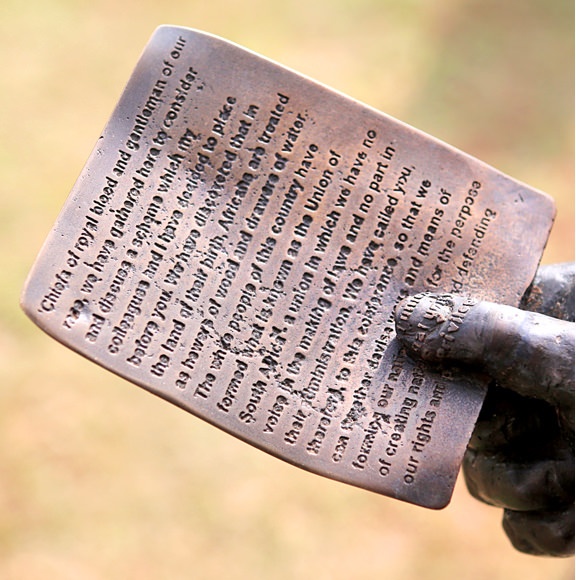 'Chiefs of royal blood and gentleman of our
race we have gathered here to consider
and discuss a scheme which my
colleagues and I have decided to place
before you. We have discovered that in
the land of their birth, Africans are treated
as hewers of wood and drawers of water.
The white people of this country have
formed what is known as the Union of
South Africa - a union in which we have no
voice in the making of laws and no part in
their administration. We have called you,
therefore to this conference so that we
can together devis and means of
forming our nat for the perpose
of creating nat defending
our rights and